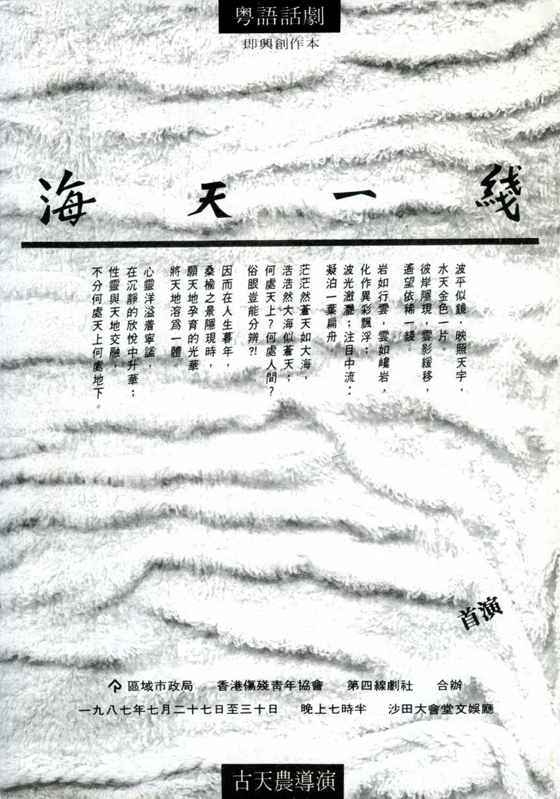 粵語話劇
即興創作本
海天一綫
波平似鏡，映照天宇，
水天金色一片。
彼岸隱現，雲影緩移，
遙望依稀一綫。
岩如行雲，雲如巉岩，
化作異彩飄浮；
波光瀲灔；注目中流：
凝泊一葉扁舟
茫茫然蒼天如大海，
浩浩然大海似蒼天；
何處天上？何處人間？
俗眼豈能分辨?!
因而在人生暮年，
桑榆之景隱現時，
願天地孕育的光華
將天地溶爲一體。
心靈洋溢着寧謐，
在沉靜的欣悅中升華；
性靈與天地交融，
不分何處天上何處地下。
首演
區域市政局 香港傷殘靑年協會 第四線劇社 合辦
一九八七年七月二十七日至三十日 晚上七時半 沙田大會堂文娛廳
古天農導演